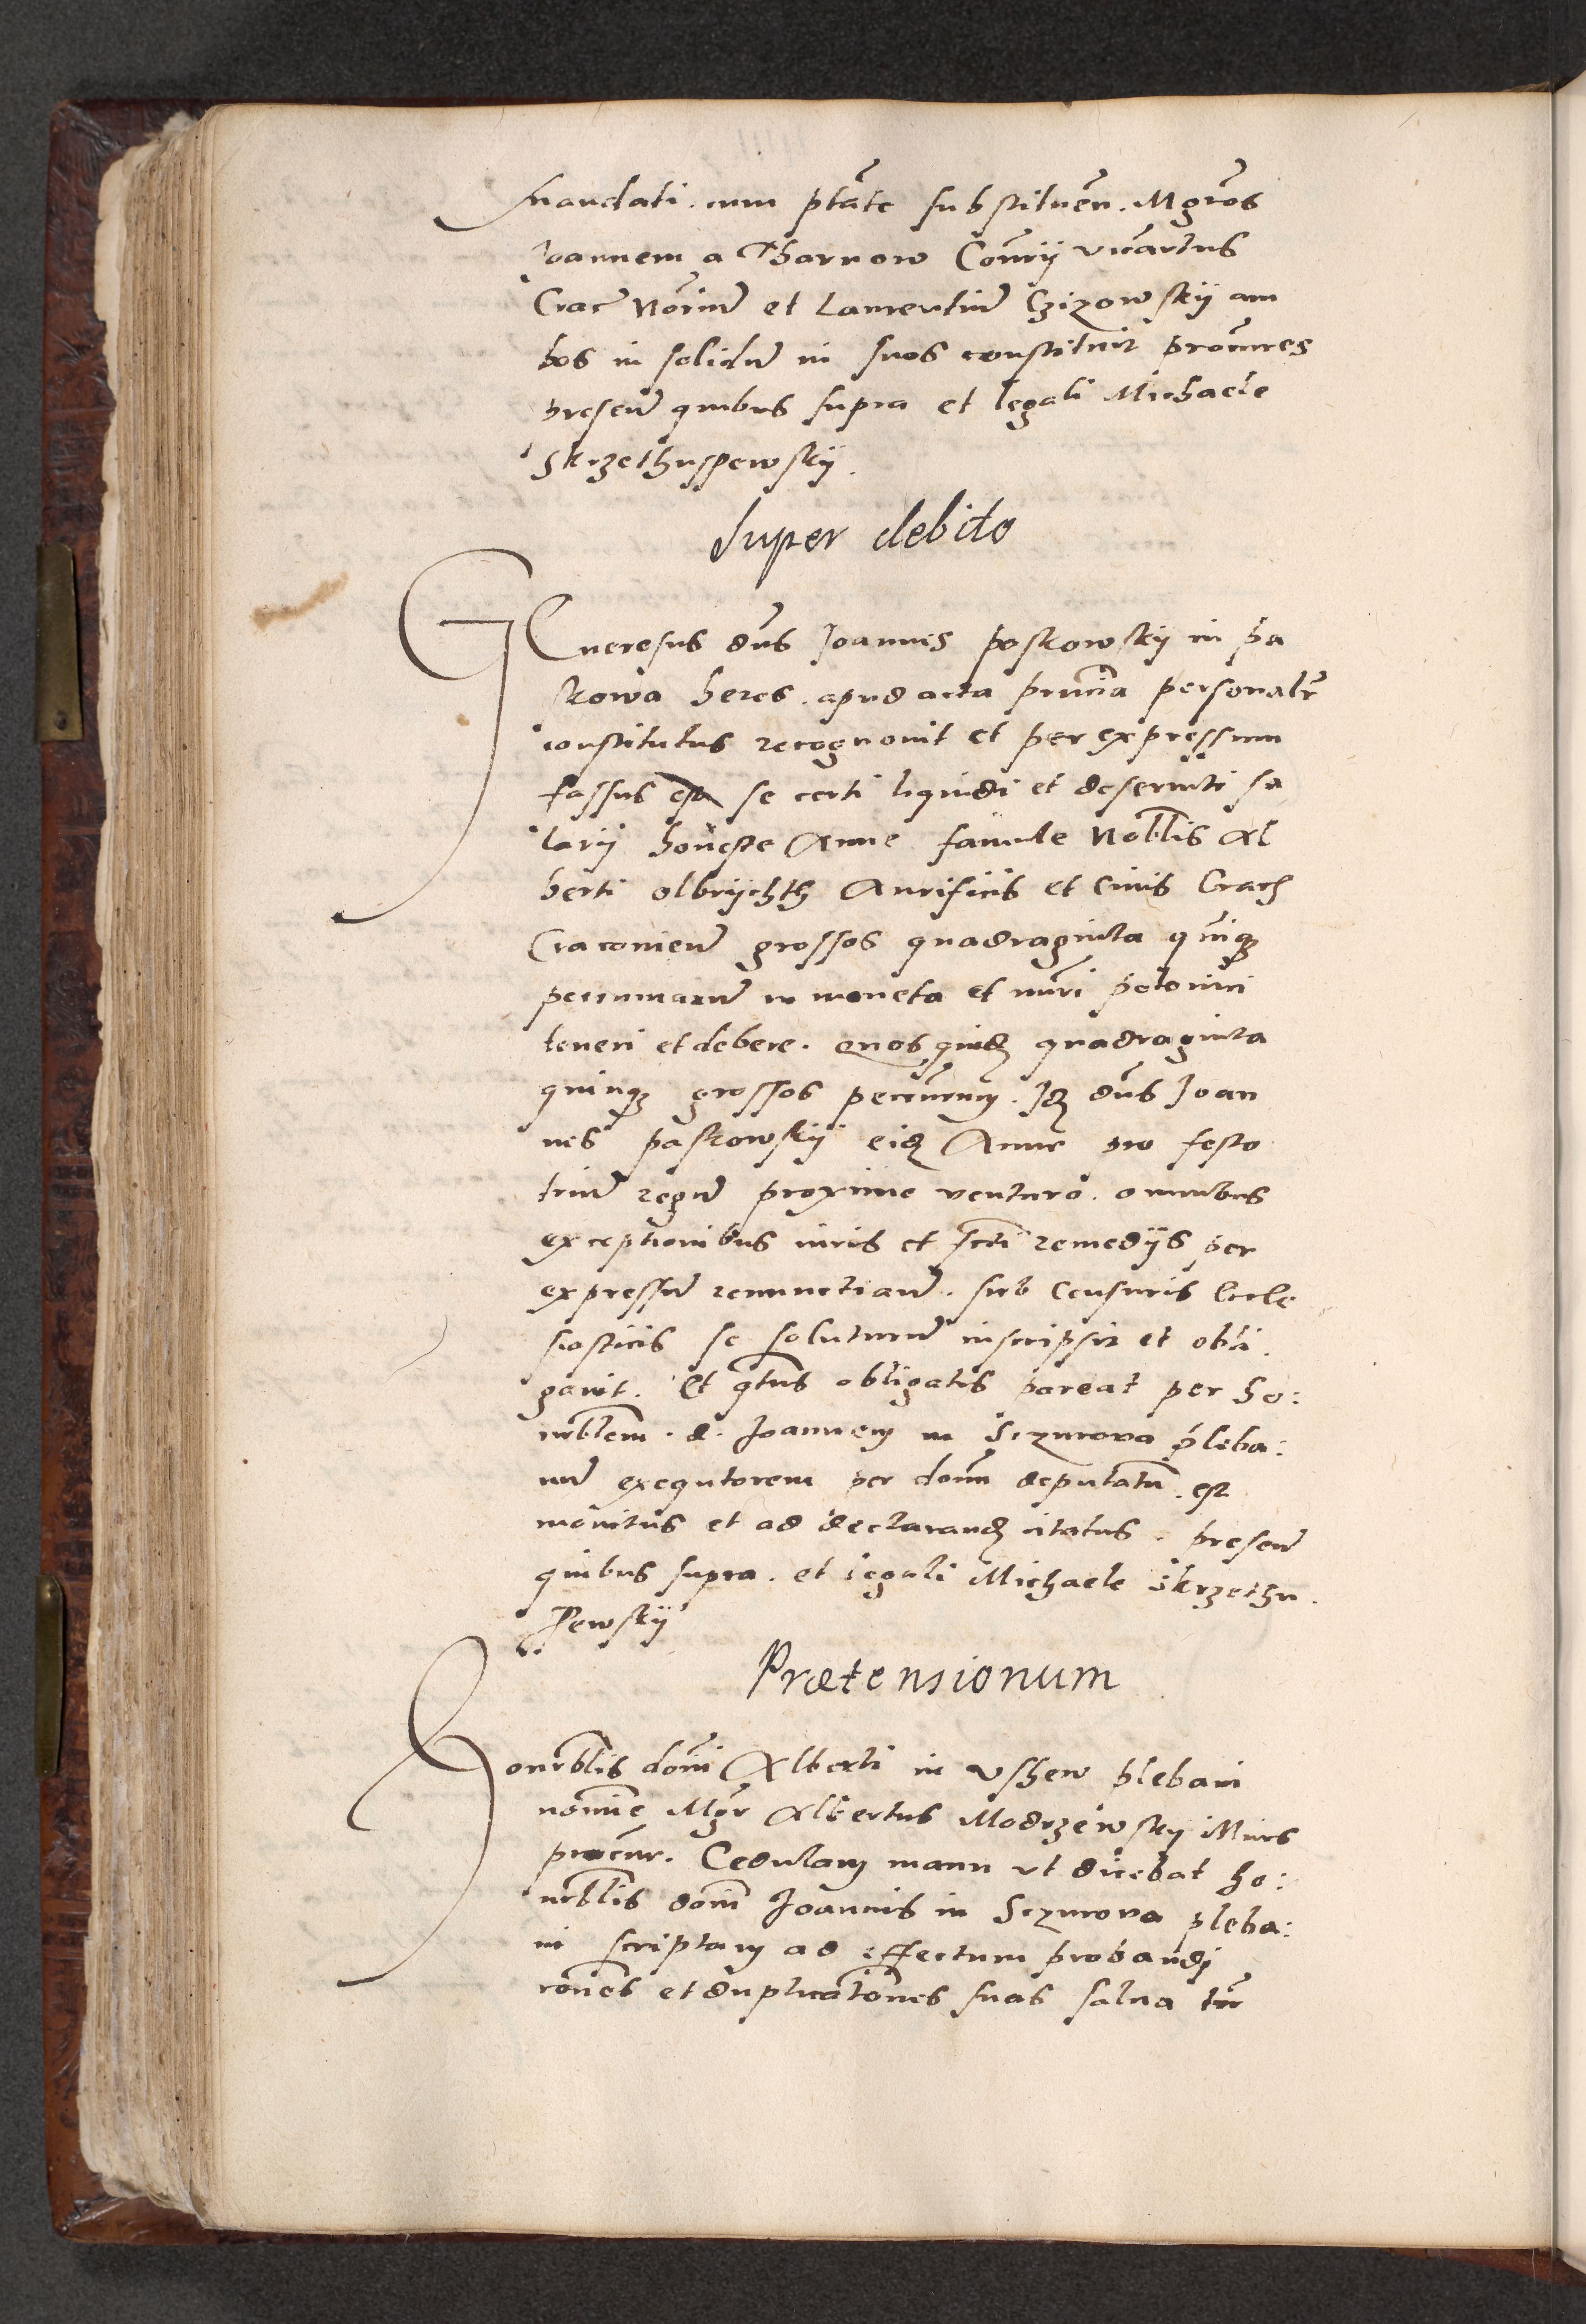 mandati. cum ptate substituen. Mgros
Joannem a Tharnow Consrij vicarius
Crac Norium et Laurentium Czizowskij am
bos in solidum in suos constituit procures
presen quibus supra et legali Michaele
Skrzethuspewskij.
Super debito
Generosus dns Joannes paskowskij in pa
skowa heres. apud acta pruncia personalr
constitutus recognovit et per expressum
fassus est se certi liquidi et deserviti sa
larij honeste Anne famule Noblis Al
berti olbrijchth Aurificis et Civis Crach
Craconien grossos quadraginta quinq
pecuniarum in moneta et nuri polonici
teneri et debere. quos quid quadraginta
quinq grossos pecuniarum. Id dns Joan
nes paskowskij eid Anne pro festo
trium regum proxime venturo. omnibus
exceptionibus iuris et fcti remedijs per
expressum renunctiatum. sub Censuris Eccle
siasticis se soluturum inscripsit et obli.
gavit. Et qtus obligatis pareat per ho:
norblem. d. Joannem in Sczurova pleba:
num exequtorem per donm deputatum. est
monitus et ad declarand citatus. presen
quibus supra. et legali Michaele Skrzethu.
spewskij
Prætensionum
Honorblis domi Alberti in Vshew plebani
nomine Mgr Albertus Modrzewskij
procur. Cedulam manu ut dicebat ho:
norblis domi Joannis in Sczurova pleba:
ni scriptam ad effectum probandi
rones et duplicationes suas salva tn